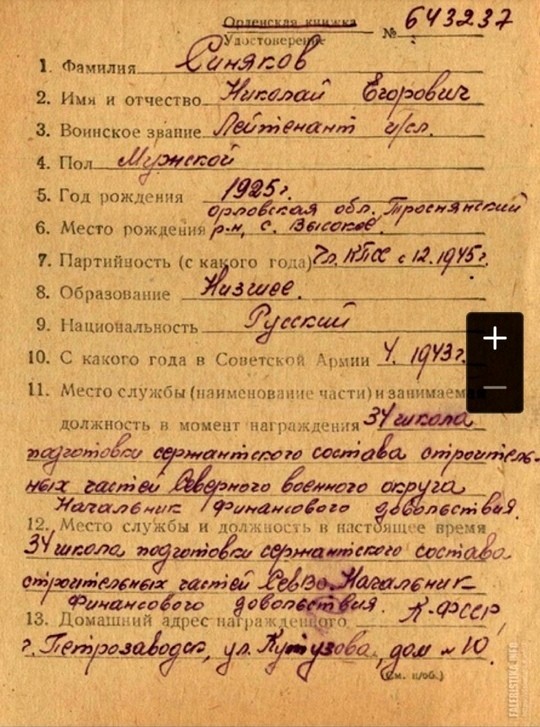 Орденская книжка
Удостоверение № 643237
1. Фамилия Синяков
2. Имя и отчество Николай Егорович
3. Воинское звание Лейтенант и/сл.
4. Пол Мужской
5. Год рождения 1925 г.
орловская обл. Троснянский
6. Место рождения р-н, с. Высокое.
7. Партийность (с какого года) Чл. КПСС с 12.1945г.
8. Образование Низшее.
9. Национальность Русский
10. С какого года в Советской Армии 4. 1943г.
11. Место службы (наименование части) и занимаемая
должность в момент награждения 34 школа
подготовки сержантского состава строитель-
ных частей Северного военного округа
Начальник финансового довольствия.
12. Место службы и должность в настоящее время
34 школа подготовки сержантского состава
строительных частей СевВО. Начальник
финансового довольствия.
13. Домашний адрес награжденного К-ФССР
г. Петрозаводск, ул. Кутузова, дом № 10.
(См. н/об.)
FALERISTIKA.INFO